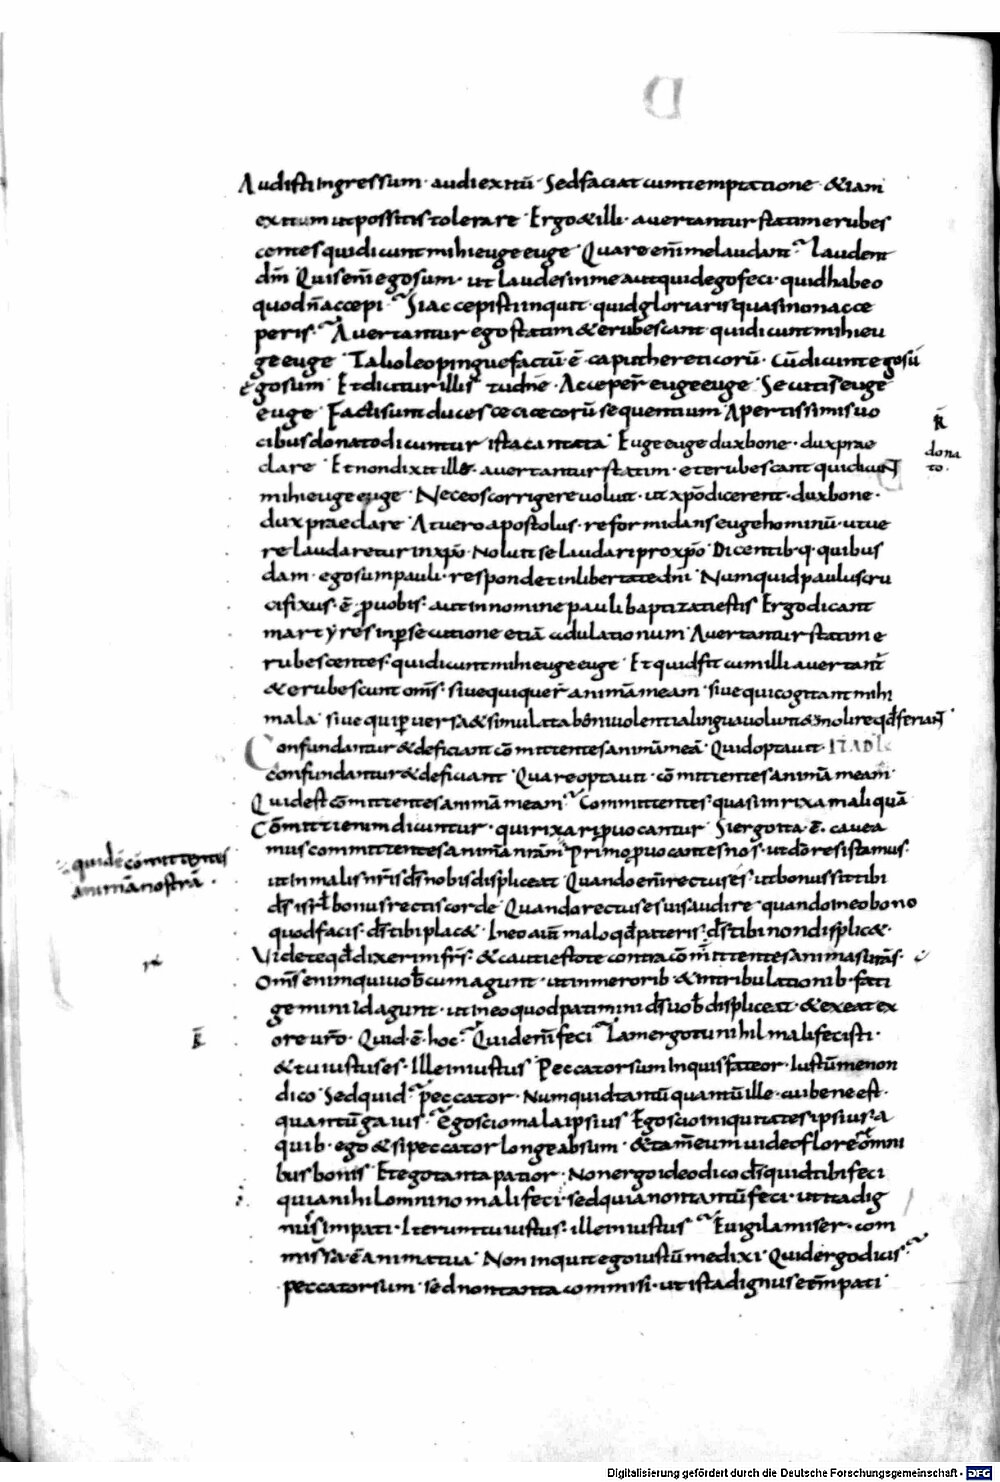 Audisti ingressum · audi exitū · Sed faciat cum temptatione · &iam
exitum ut possitis tolerare · Ergo & illi · avertantur statim erubes
centes qui dicunt mihi euge euge · Quare enī me laudant · Laudent
dm̄ · Quis enī ego sum · ut laudes in me aut quid ego feci · quid habeo
quod n̄ accepi · Si accepisti inquit · quid gloriaris quasi non acce
peris · Avertantur ergo statim & erubescant · qui dicunt mihi eu
ge euge · Tali oleo pinguefactū ē · caput hereticorū · Cū dicunt ego sū
ego sum · Et dicitur illis tu dn̄e · Acceper̄ euge euge · Secuti s̄ euge
euge · Facti sunt duces ceci cecorū sequentium · Apertissimis uo
cibus donato dicuntur ista cantata · Euge euge dux bone · dux prae
clare · Et non dixit ille · avertantur statim · et erubescant qui dicunt
mihi euge euge · Nec eos corrigere voluit · ut xp̄o dicerent · dux bone ·
dux praeclare · At vero apostolus · reformidans euge hominū · ut ve
re laudaretur in xp̄o · Noluit se laudari pro xp̄o · Dicentib·q· quibus
dam · ego sum pauli · respondet in libertate dn̄i · Numquid paulus cru
cifixus · ē · p uobis · aut in nomine pauli baptizati estis · Ergo dicant
martyres in p̄secutione etiā adulationum · Avertantur statim e
rubescentes · qui dicunt mihi euge euge · Et quid fit cum illi avertant̄
& erubescunt om̄s · sive qui quer̄ animā meam · sive qui cogitant mihi
mala · sive qui p̄versa & simulata benivolentia lingua
Confundantur & deficiant cō mittentes animā meā · Quid optavit ·
confundantur & deficiant · Quare optavit · cō mittentes animā meam
Quid est cōmittentes animā meam · Committentes · quasi in rixam aliquā
Cōmitti enim dicuntur · qui rixari p̄vocantur · Si ergo ita ē · cavea
mus committentes animā nr̄am · Primo p̄vocantes nos · ut dō resistamus ·
ut in malis nr̄is ds̄ nobis displiceat · Quando enī rectus es · ut bonus sit tibi
ds̄ isrl̄ bonus rectis corde · Quando rectus es vis audire · quando in eo bono
quod facis · ds̄ tibi plac& · In eo autē malo qd̄ patteris · ds̄ tibi non displic& ·
Videte qd̄ dixerim frs̄ · & cauti estote contra cōmittentes animas ur̄as ·
Om̄s enim qui uob̄cum agunt · ut in merorib· & in tribulationib· fati
gemini id agunt · ut in eo quod patimini ds̄ uob̄ displiceat · & exeat ex
ore ur̄o · Quid · ē · hoc · Quid enī feci · Iam ergo tu nihil mali fecisti ·
& tu iustus es · Ille iniustus · Peccator sum inquis fateor · Iustū me non
dico · Sed quid · peccator · Numquid tantū quantū ille · cui bene est ·
quantū gaius · Ego scio mala ipsius · Ego scio iniquitates ipsius · a
quib · ego & si peccator longe absum · & tam̄ eum video florē omni
bus bonis · Et ego tanta patior · Non ergo ideo dico ds̄ quid tibi feci
quia nihil omnino mali feci · sed quia non tantū feci · ut ita dig
nus sim pati · Iterum tu iustus · ille iniustus · Evigila miser · com
missa ē anima tua · Non inquit ego iustū me dixi · Quid ergo dicis
peccator sum · sed non tanta commisi · ut ista dignus
dona
to ·
quid ē cōmittentes
animā nostrā ·
Digitalisierung gefördert durch die Deutsche Forschungsgemeinschaft - DFG